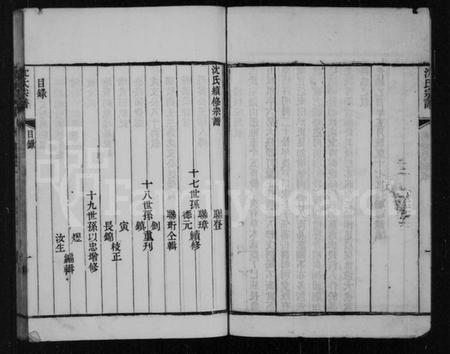 沈氏宗譜
沈氏續修宗譜
聯登
十七世孫聯璋續修
德元
聯珩仝輯
十八世孫劍重刊
鎮
寅
長錦校正
十九世孫以忠增修
煜
汝生編輯
目錄
沈氏宗譜
目錄
FamilySearch